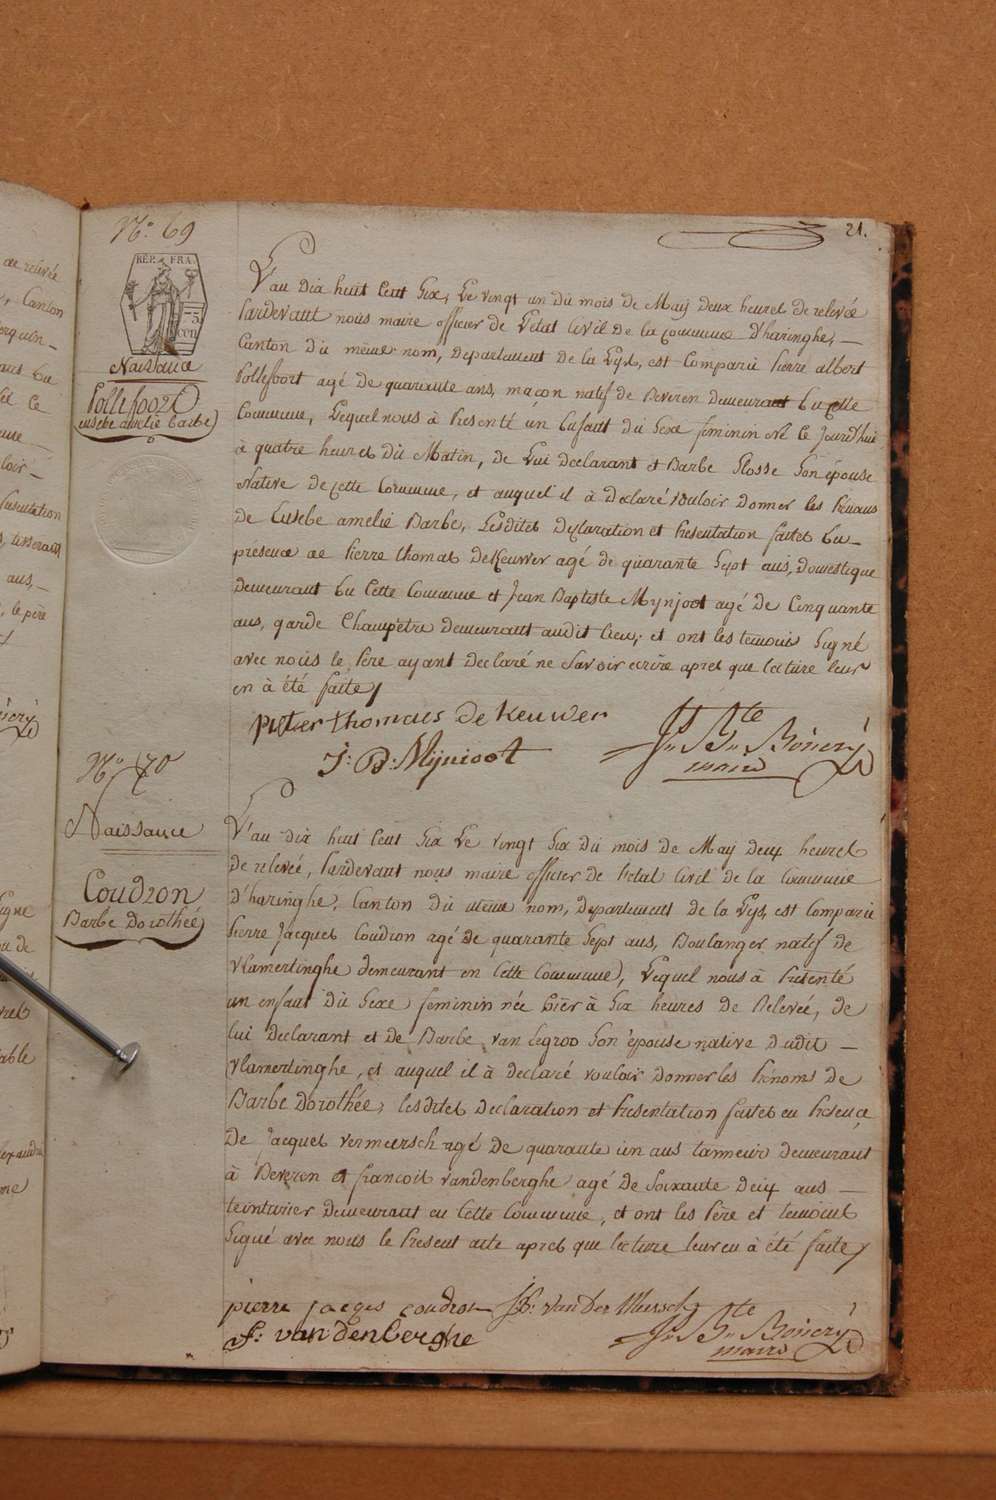 21.
Nº 69
RÉP. FRA.
75
cen
Naissance
Pollefoort
Eusebe amelie Barbe
L'an dix huit Cent Six, Le vingt un du mois de May deux heures de relevée
Pardevant nous maire officier de l'etat Civil de la commune d'haringhe, —
Canton du même nom, departement de la Lys, est Comparû Pierre albert
Pollefoort agé de quarante ans, maçon natif de Beveren demeurant En cette
Commune, Lequel nous à Presenté un Enfant du Sexe feminin Né ce Jourd'hui
à quatre heures du Matin, de Lui declarant et Barbe Plosse Son épouse
Native de cette Commune, et auquel il à declaré vouloir donner les Prénoms
de Eusebe amelie Barbe, Lesdites declaration et Presentation faites En
présence de Pierre thomas deKeuwer agé de quarante Sept ans, domestique
demeurant En Cette Commune et Jean Baptiste Mynjoot agé de Cinquante
ans, garde Champêtre demeurant audit Lieu, et ont les temoins Signé
avec nous le Père ayant declaré ne Savoir ecrire apres que lecture leur
en à été faite /
pieter thomaes de Keuwer
J: B: Mijnioot
maire
Nº 70
Naissance
Coudron
Barbe Dorothée
L'an dix huit Cent Six Le vingt Six du mois de May deux heures
de relevée, Pardevant nous maire officier de l'etat Civil de la Commune
d'haringhe, Canton du même nom, departement de la Lys, est Comparû
Pierre Jacques Coudron agé de quarante Sept ans, Boulanger natif de
Vlamertinghe demeurant en Cette Commune, Lequel nous à Presenté
un enfant du Sexe feminin née hier à Six heures de Relevée, de
lui declarant et de Barbe van Legroo Son épouse native dudit —
Vlamertinghe, et auquel il à declaré vouloir donner les Prénoms de
Barbe Dorothée, lesdites declaration et Presentation faites en Presence
de Jacques vermeersch agé de quarante un ans tanneur demeurant
à Beveren et francois vandenberghe agé de Soixante deux ans —
teinturier demeurant en Cette Commune, et ont les Père et temoins
Signé avec nous le Present acte apres que lecture leur en à été faite /
pierre jacges coudron
van der Mersch
f: vandenberghe
maire